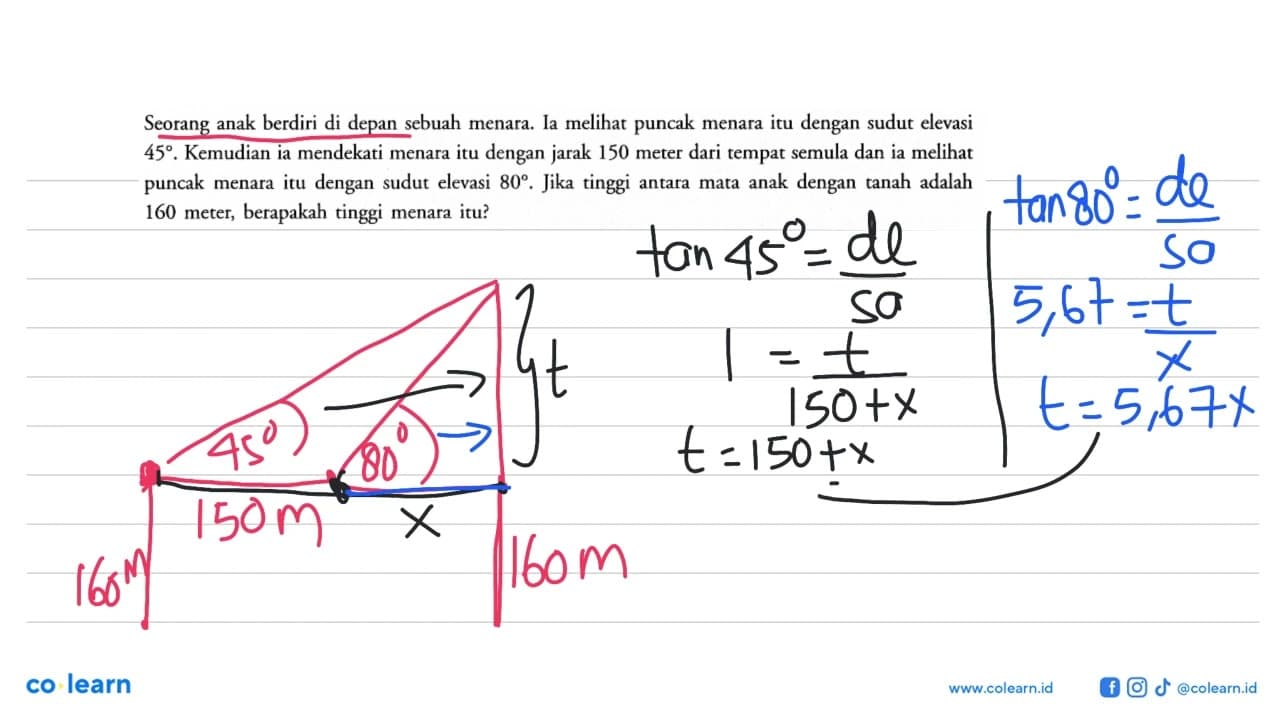 Seorang anak berdiri di depan sebuah menara. Ia melihat puncak menara itu dengan sudut elevasi
45°. Kemudian ia mendekati menara itu dengan jarak 150 meter dari tempat semula dan ia melihat
puncak menara itu dengan sudut elevasi 80°. Jika tinggi antara mata anak dengan tanah adalah
160 meter, berapakah tinggi menara itu?
tan 45° = de
sa
1 = t
150+x
t = 150+x
tan 80° = de
sa
5,67 = t
x
t = 5,67x
t
45°
80°
150 m
x
160 m
160 m
co learn
www.colearn.id
@colearn.id